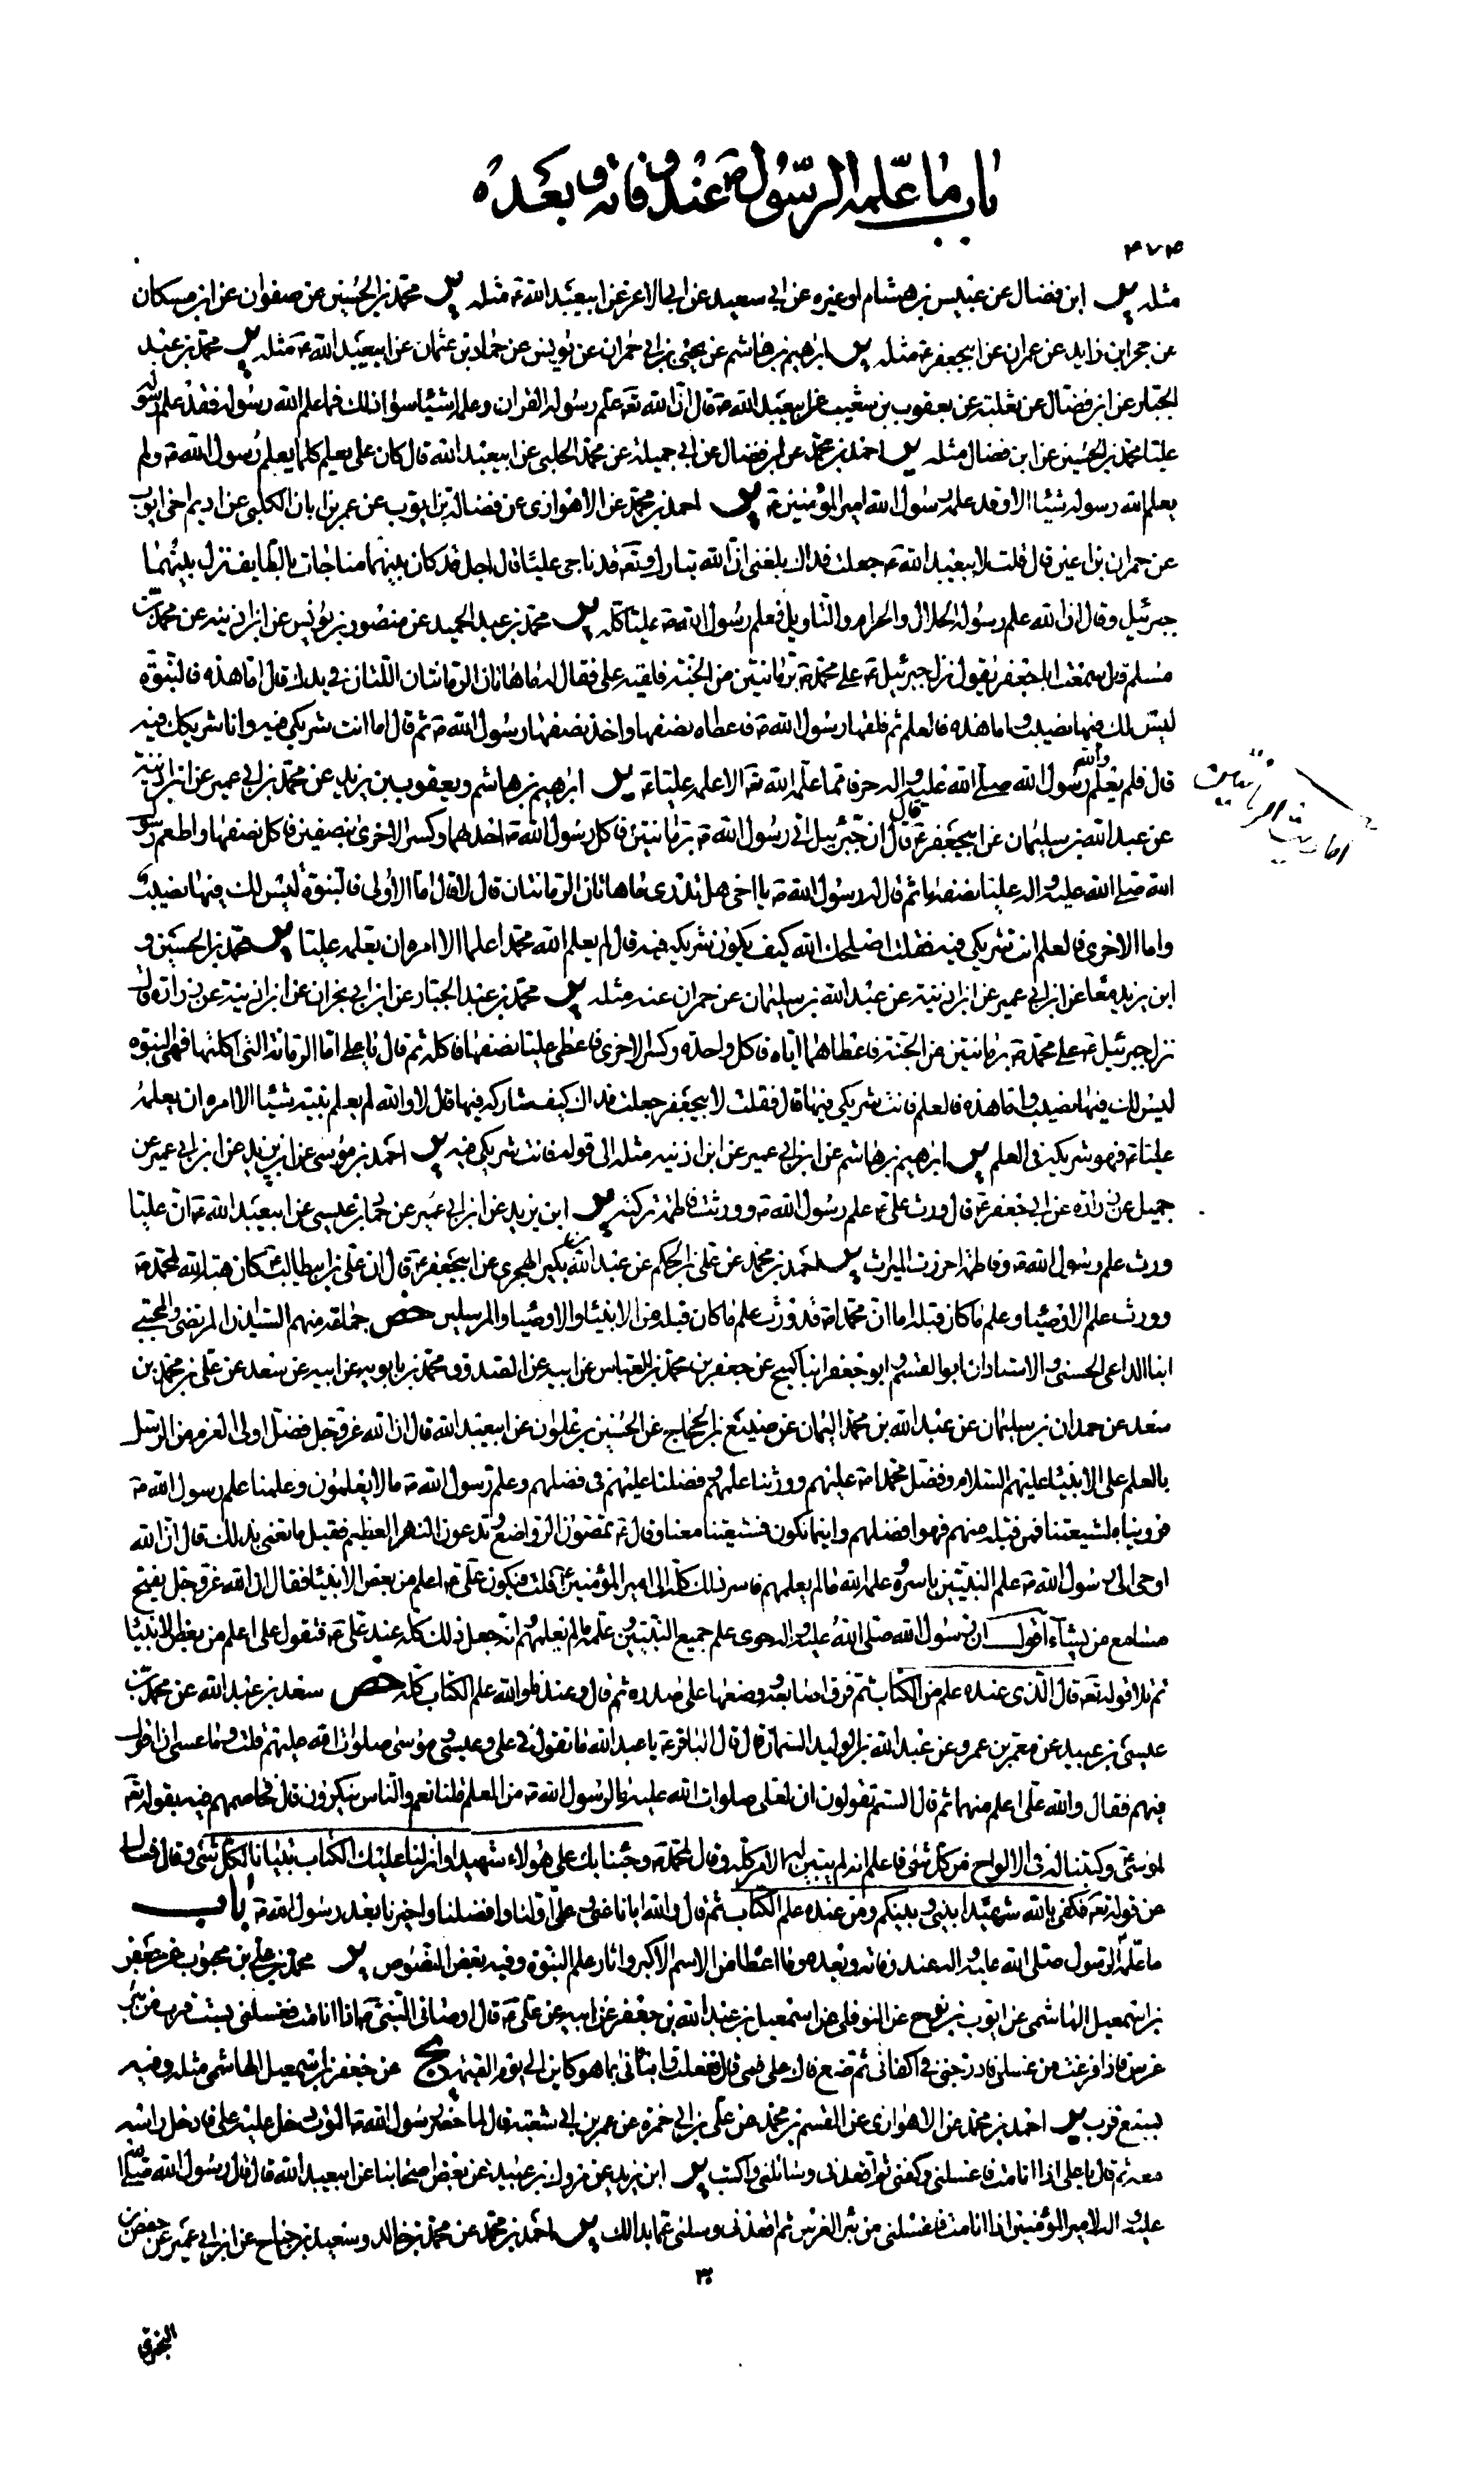 باب ما علّمه الرّسول ص عند وفاته و بعده
۴۷۴
مثله ير ابن فضال عن عبيس بن هشام او غيره عن ابي سعيد عن ابي الاعز عن ابيعبد الله ع مثله ير محمد بن الحسين عن صفوان عن ابن مسكان
عن حجر بن زايد عن حمران عن ابيجعفر ع مثله ير ابرهيم بن هاشم عن يحيى بن ابي عمران عن يونس عن حماد بن عثمان عن ابيعبد الله ع مثله ير محمد بن عبد
الجبار عن ابن فضال عن ثعلبة عن يعقوب بن شعيب عن ابيعبد الله ع قال ان الله تعه علم رسوله القران وعلمه شيئا سوا ذلك فما علم الله رسوله فقد علم رسوله
عليا محمد بن الحسين عن ابن فضال مثله ير احمد بن محمد عن ابن فضال عن ابي جميلة عن محمد الحلبي عن ابيعبد الله قال كان علي يعلم كلما يعلم رسول الله ص ولم
يعلم الله رسوله شيئا الا وقد علمه رسول الله امير المؤمنين ع ير احمد بن محمد عن الاهوازى عن فضالة بن ايوب عن عمر بن ابان الكلبى عن اديم اخى ايوب
عن حمران بن اعين قال قلت لابيعبد الله ع جعلت فداك بلغني ان الله تبارك وتعه قد ناجى عليا قال اجل قد كان بينهما مناجات بالطايف نزل بينهما
جبرئيل وقال ان الله علم رسوله الحلال والحرام والتاويل فعلم رسول الله ص عليا كله ير محمد بن عبد الحميد عن منصور بن يونس عن ابن اذينه عن محمد بن
مسلم قال سمعت ابا جعفر يقول نزل جبرئيل ع على محمد ص برمانتين من الجنة فلقيه علي فقال له ما هاتان الرمانتان اللتان في يدك قال اما هذه فالنبوة
ليس لك فيها نصيب واما هذه فالعلم ثم فلقها رسول الله ص فاعطاه نصفها واخذ نصفها رسول الله ص ثم قال اما انت شريكي فيه وانا شريكك فيه
قال فلم يعلم والله رسول الله صلى الله عليه واله حرفا مما علمه الله تعه الا علمه عليا ع ير ابرهيم بن هاشم ويعقوب بن يزيد عن محمد بن ابي عمير عن ابن اذينة
عن عبد الله بن سليمان عن ابيجعفر ع قال ان جبرئيل اتى رسول الله ص برمانتين فاكل رسول الله ص احدهما وكسر الاخرى بنصفين فاكل نصفها واطعم رسول
الله صلى الله عليه واله عليا نصفها ثم قال له رسول الله ص يا اخي هل تدرى ما هاتان الرمانتان قال لا قال اما الاولى فالنبوة ليس لك فيها نصيب
واما الاخرى فالعلم انت شريكي فيه فقلت اصلحك الله كيف يكون شريكه فيه قال لم يعلم الله محمدا علما الا امره ان يعلمه عليا ير محمد بن الحسين و
ابن يزيد معا عن ابن ابي عمير عن ابن اذينة عن عبد الله بن سليمان عن حمران عنه مثله ير محمد بن عبد الجبار عن ابن ابي نجران عن ابن اذينة عن زرارة قال
نزل جبرئيل ع على محمد ص برمانتين من الجنة فاعطاهما اياه فاكل واحدة وكسر الاخرى فاعطى عليا نصفها فاكله ثم قال يا علي اما الرمانة التى اكلتها فهى النبوة
ليس لك فيها نصيب واما هذه فالعلم فانت شريكي فيها قال فقلت لابيجعفر جعلت فداك كيف شاركه فيها قال لا والله لم يعلم نبيه شيئا الا امره ان يعلمه
عليا ع فهو شريكه فى العلم ير ابرهيم بن هاشم عن ابن ابي عمير عن ابن اذنيه مثله الى قوله فانت شريكي فيه ير احمد بن موسى عن ابن يزيد عن ابن ابي عمير عن
جميل عن زرارة عن ابي جعفر ع قال ورث علي ع علم رسول الله ص وورثت فاطمة تركته ير ابن يزيد عن ابن ابي عمير عن حماد بن عيسى عن ابيعبد الله ع ان عليا
ورث علم رسول الله ص وفاطمة احرزت الميراث ير احمد بن محمد عن علي بن الحكم عن عبد الله بن بكير الهجري عن ابيجعفر ع قال ان علي بن ابيطالب ع كان هبة الله لمحمد ص
وورث علم الاوصيا وعلم ما كان قبله اما ان محمدا ص قد ورث علم ما كان قبله من الانبيا والاوصيا والمرسلين خص جماعة منهم السيدان المرتضى والمجتبى
ابنا الداعى الحسنى والاستادان ابو القسم وابو جعفر ابنا كميح عن جعفر بن محمد بن العباس عن ابيه عن الصدوق محمد بن بابويه عن ابيه عن سعد عن علي بن محمد بن
سعد عن حمدان بن سليمان عن عبد الله بن محمد اليمان عن منيع بن الحجاج عن الحسين بن علوان عن ابيعبد الله قال ان الله عز وجل فضل اولى العزم من الرسل
بالعلم على الانبيا عليهم السلام وفضل محمدا ص عليهم وورثنا علمهم وفضلنا عليهم فى فضلهم وعلم رسول الله ص ما لا يعلمون وعلمنا علم رسول الله ص
فرويناه لشيعتنا فمن قبله منهم فهو افضلهم واينما نكون فشيعتنا معنا وقال ع تمصون الرواضع وتدعون النهر العظيم فقيل ما تعنى بذلك قال ان الله
اوحى الى رسول الله ص علم النبيين باسره وعلمه الله ما لم يعلمهم فاسر ذلك كله الى امير المؤمنين ع قلت فيكون علي ع اعلم من بعض الانبيا فقال ان الله عز وجل يفتح
مسامع من يشآء اقول ان رسول الله صلى الله عليه واله حوى علم جميع النبيين وعلمه ما لم يعلمهم وانه جعل ذلك كله عند علي ع فتقول علي اعلم من بعض الانبيا
ثم تلا قوله تعه قال الذى عنده علم من الكتاب ثم فرق اصابعه ووضعها على صدره ثم قال وعندنا والله علم الكتاب كله خص سعد بن عبد الله عن محمد بن
عيسى بن عبيد عن معمر بن عمرو عن عبد الله بن الوليد السمان قال قال الباقر ع يا عبد الله ما تقول في علي وعيسى وموسى صلوات الله عليهم قلت وما عسى ان اقول
فيهم فقال والله علي اعلم منهما ثم قال الستم تقولون ان لعلى صلوات الله عليه ما لرسول الله ص من العلم قلنا نعم والناس ينكرون قال فخاصمهم فيه بقوله تعه
لموسى وكتبنا له فى الالواح من كل شئ فاعلم انه لم يبين له الامر كله وقال لمحمد ص وجئنا بك على هؤلاء شهيدا وانزلنا عليك الكتاب تبيانا لكل شئ وقال فسال
عن قوله تعه فكفى بالله شهيدا بينى وبينكم ومن عنده علم الكتاب ثم قال والله ايانا عنى وعلي اولنا وافضلنا واخيرنا بعد رسول الله ص باب
ما علمه الرسول صلى الله عليه واله عند وفاته وبعده وما اعطاه من الاسم الاكبر واثار علم النبوة وفيه بعض النصوص ير محمد بن علي بن محبوب عن جعفر
بن اسمعيل الهاشمى عن ايوب بن نوح عن النوفلى عن اسمعيل بن عبد الله بن جعفر عن ابيه عن علي ع قال اوصانى النبى ص اذا انا مت فغسلنى بست قرب من بئر
غرس فاذا فرغت من غسلى فادرجنى فى اكفانى ثم ضع فاك على فمى قال ففعلت وانبانى بما هو كاين الى يوم القيمة يج عن جعفر بن اسمعيل الهاشمى مثله وفيه
بسبع قرب ير احمد بن محمد عن الاهوازى عن القسم بن محمد عن علي بن ابي حمزه عن عمر بن ابي شعبة قال لما حضر رسول الله ص الموت دخل عليه علي فادخل راسه
معه ثم قال يا علي اذا انا مت فاغسلنى وكفنى ثم اقعدنى وسائلنى واكتب ير ابن يزيد عن مروك بن عبيد عن بعض اصحابنا عن ابيعبد الله قال قال رسول الله صلى الله
عليه واله لامير المؤمنين اذا انا مت فغسلنى من بئر الغرس ثم اقعدنى وسلنى عما بدا لك ير احمد بن محمد عن محمد بن خالد وسعيد بن جناح عن ابن ابي عمير عن حفص بن
البخترى